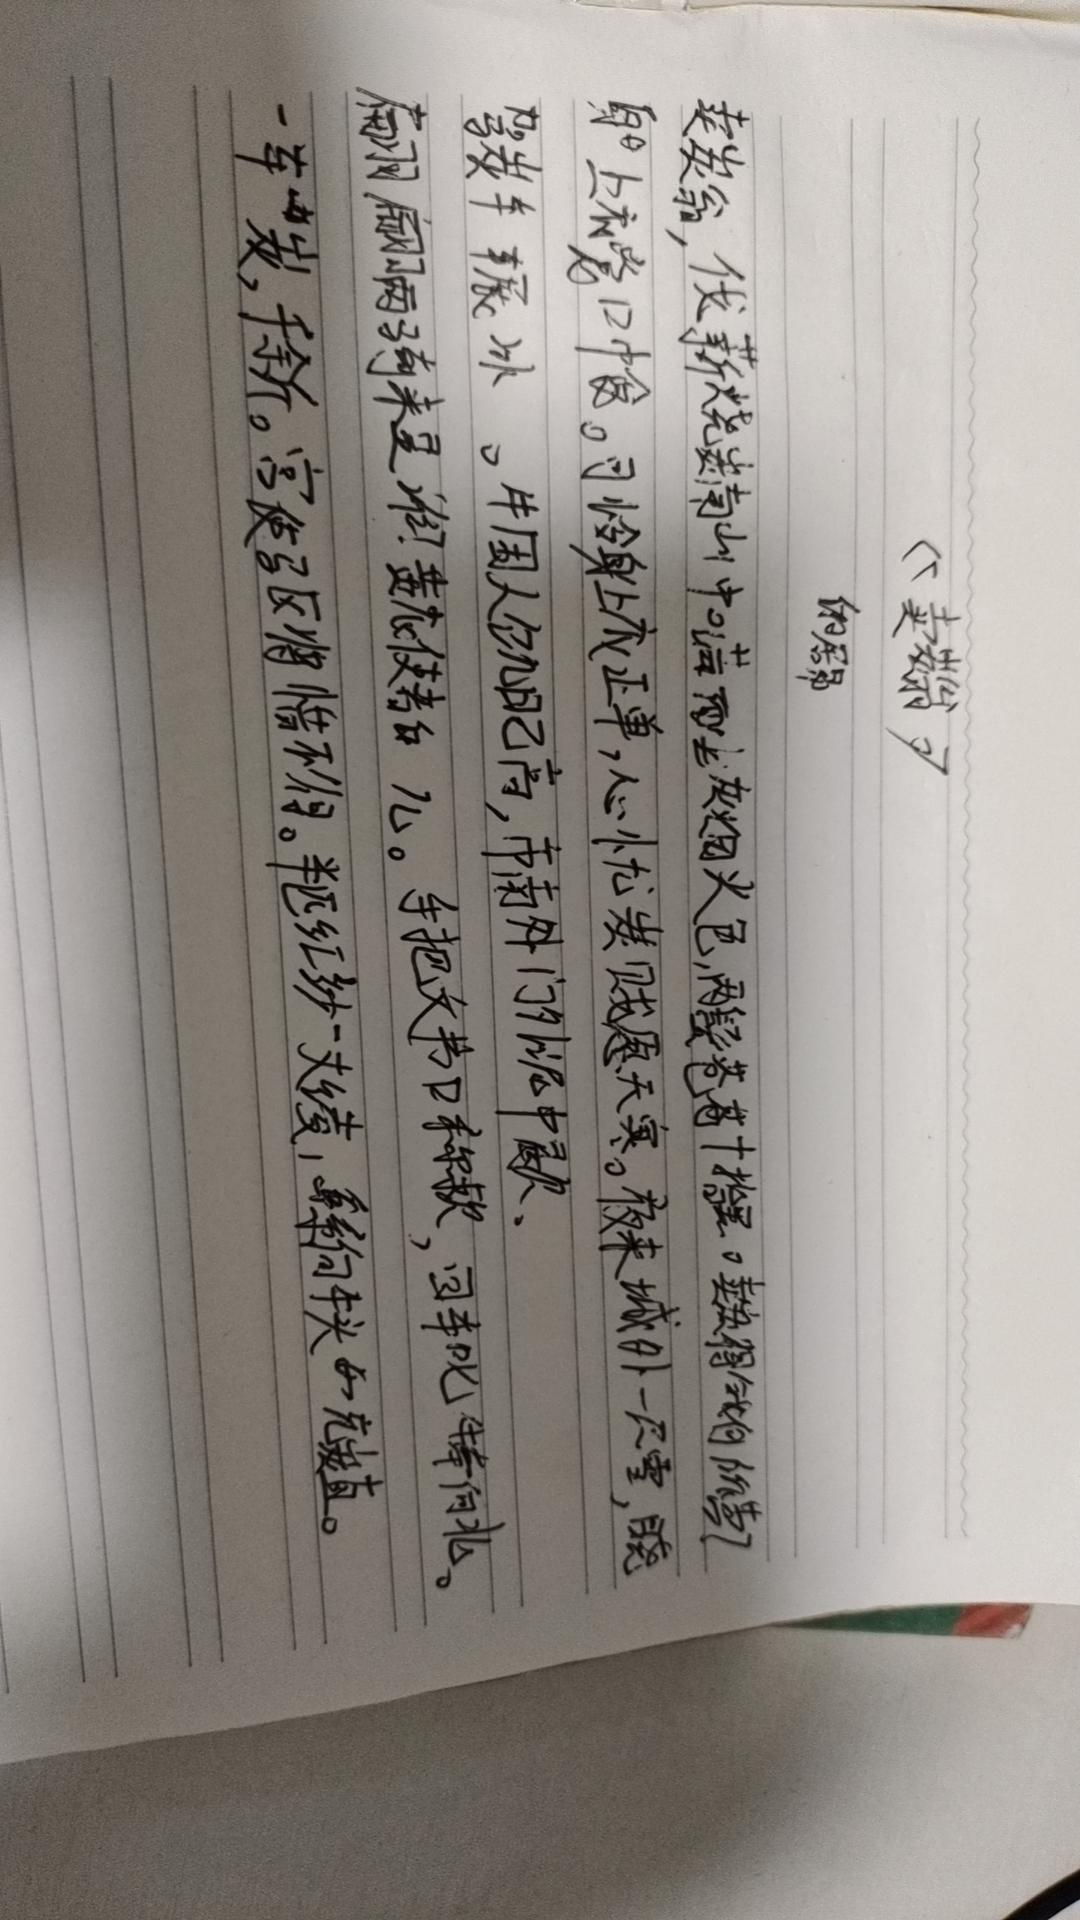 《卖炭翁》
白居易
卖炭翁，伐薪烧炭南山中。满面尘灰烟火色，两鬓苍苍十指黑。卖炭得钱何所营？
身上衣裳口中食。可怜身上衣正单，心忧炭贱愿天寒。夜来城外一尺雪，晓
驾炭车辗冰　。牛困人饥日已高，市南外门泥中歇、
翩翩两骑来是谁？黄衣使者白　儿。手把文书口称敕，回车叱牛牵向北。
一车炭，千余斤。宫使驱将惜不得。半匹红纱一丈绫，系向牛头充炭直。